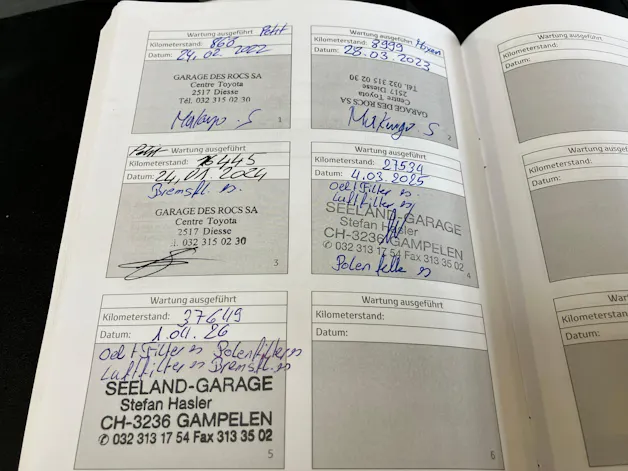 Wartung ausgeführt Petit
Kilometerstand: 868
Datum: 24.02.2022
GARAGE DES ROCS SA
Centre Toyota
2517 Diesse
Tél. 032 315 02 30
1
Wartung ausgeführt
Kilometerstand: 8999
Datum: 28.03.2023
GARAGE DES ROCS SA
Centre Toyota
2517 Diesse
Tél. 032 315 02 30
2
Petit Wartung ausgeführt
Kilometerstand: 16445
Datum: 24.01.2024
Bremsfl.
GARAGE DES ROCS SA
Centre Toyota
2517 Diesse
032 315 02 30
3
Wartung ausgeführt
Kilometerstand: 27534
Datum: 4.03.2025
Oel+Filter
Luftfilter
SEELAND-GARAGE
Stefan Hasler
CH-3236 GAMPELEN
✆ 032 313 17 54 Fax 313 35 02
4
Wartung ausgeführt
Kilometerstand: 37649
Datum:
Oel+Filter Polenfilter
Luftfilter Bremsfl.
SEELAND-GARAGE
Stefan Hasler
CH-3236 GAMPELEN
✆ 032 313 17 54 Fax 313 35 02
5
Wartung ausgeführt
Kilometerstand:
Datum:
6
Kilometerstand:
Datum:
Kilometerstand:
Datum:
Kilometerstand
Datum: